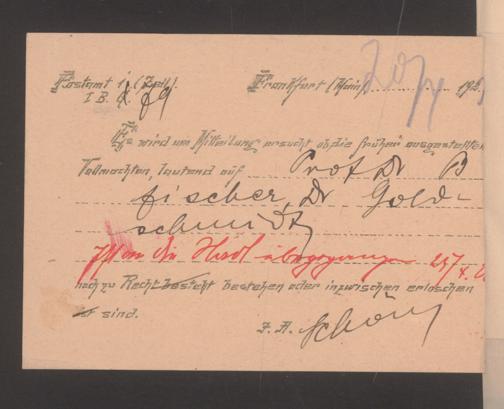 Postamt 1 (Zyll). Frankfurt (Main) 20/4 192
I B. 89
Es wird um Mitteilung ersucht ob die früher ausgestellten
Vollmachten, lautend auf Prof Dr P
fischer, Dr Gold-
schmidt
an Dr. Hertl übergegangen 29/4.
noch zu Recht besteht bestehen oder inzwischen erloschen
ist sind.
J. A. Schön